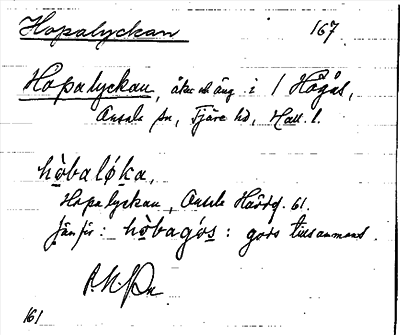 Hopalyckan 167.
Hopalyckan, åker och äng i 1 Högås,
sn, Fjäre hd, Hall. l.
hòbaløka,
Hopalyckan, Härdg. 61.
Jämför: hòbagós: gods tillsammans.
161